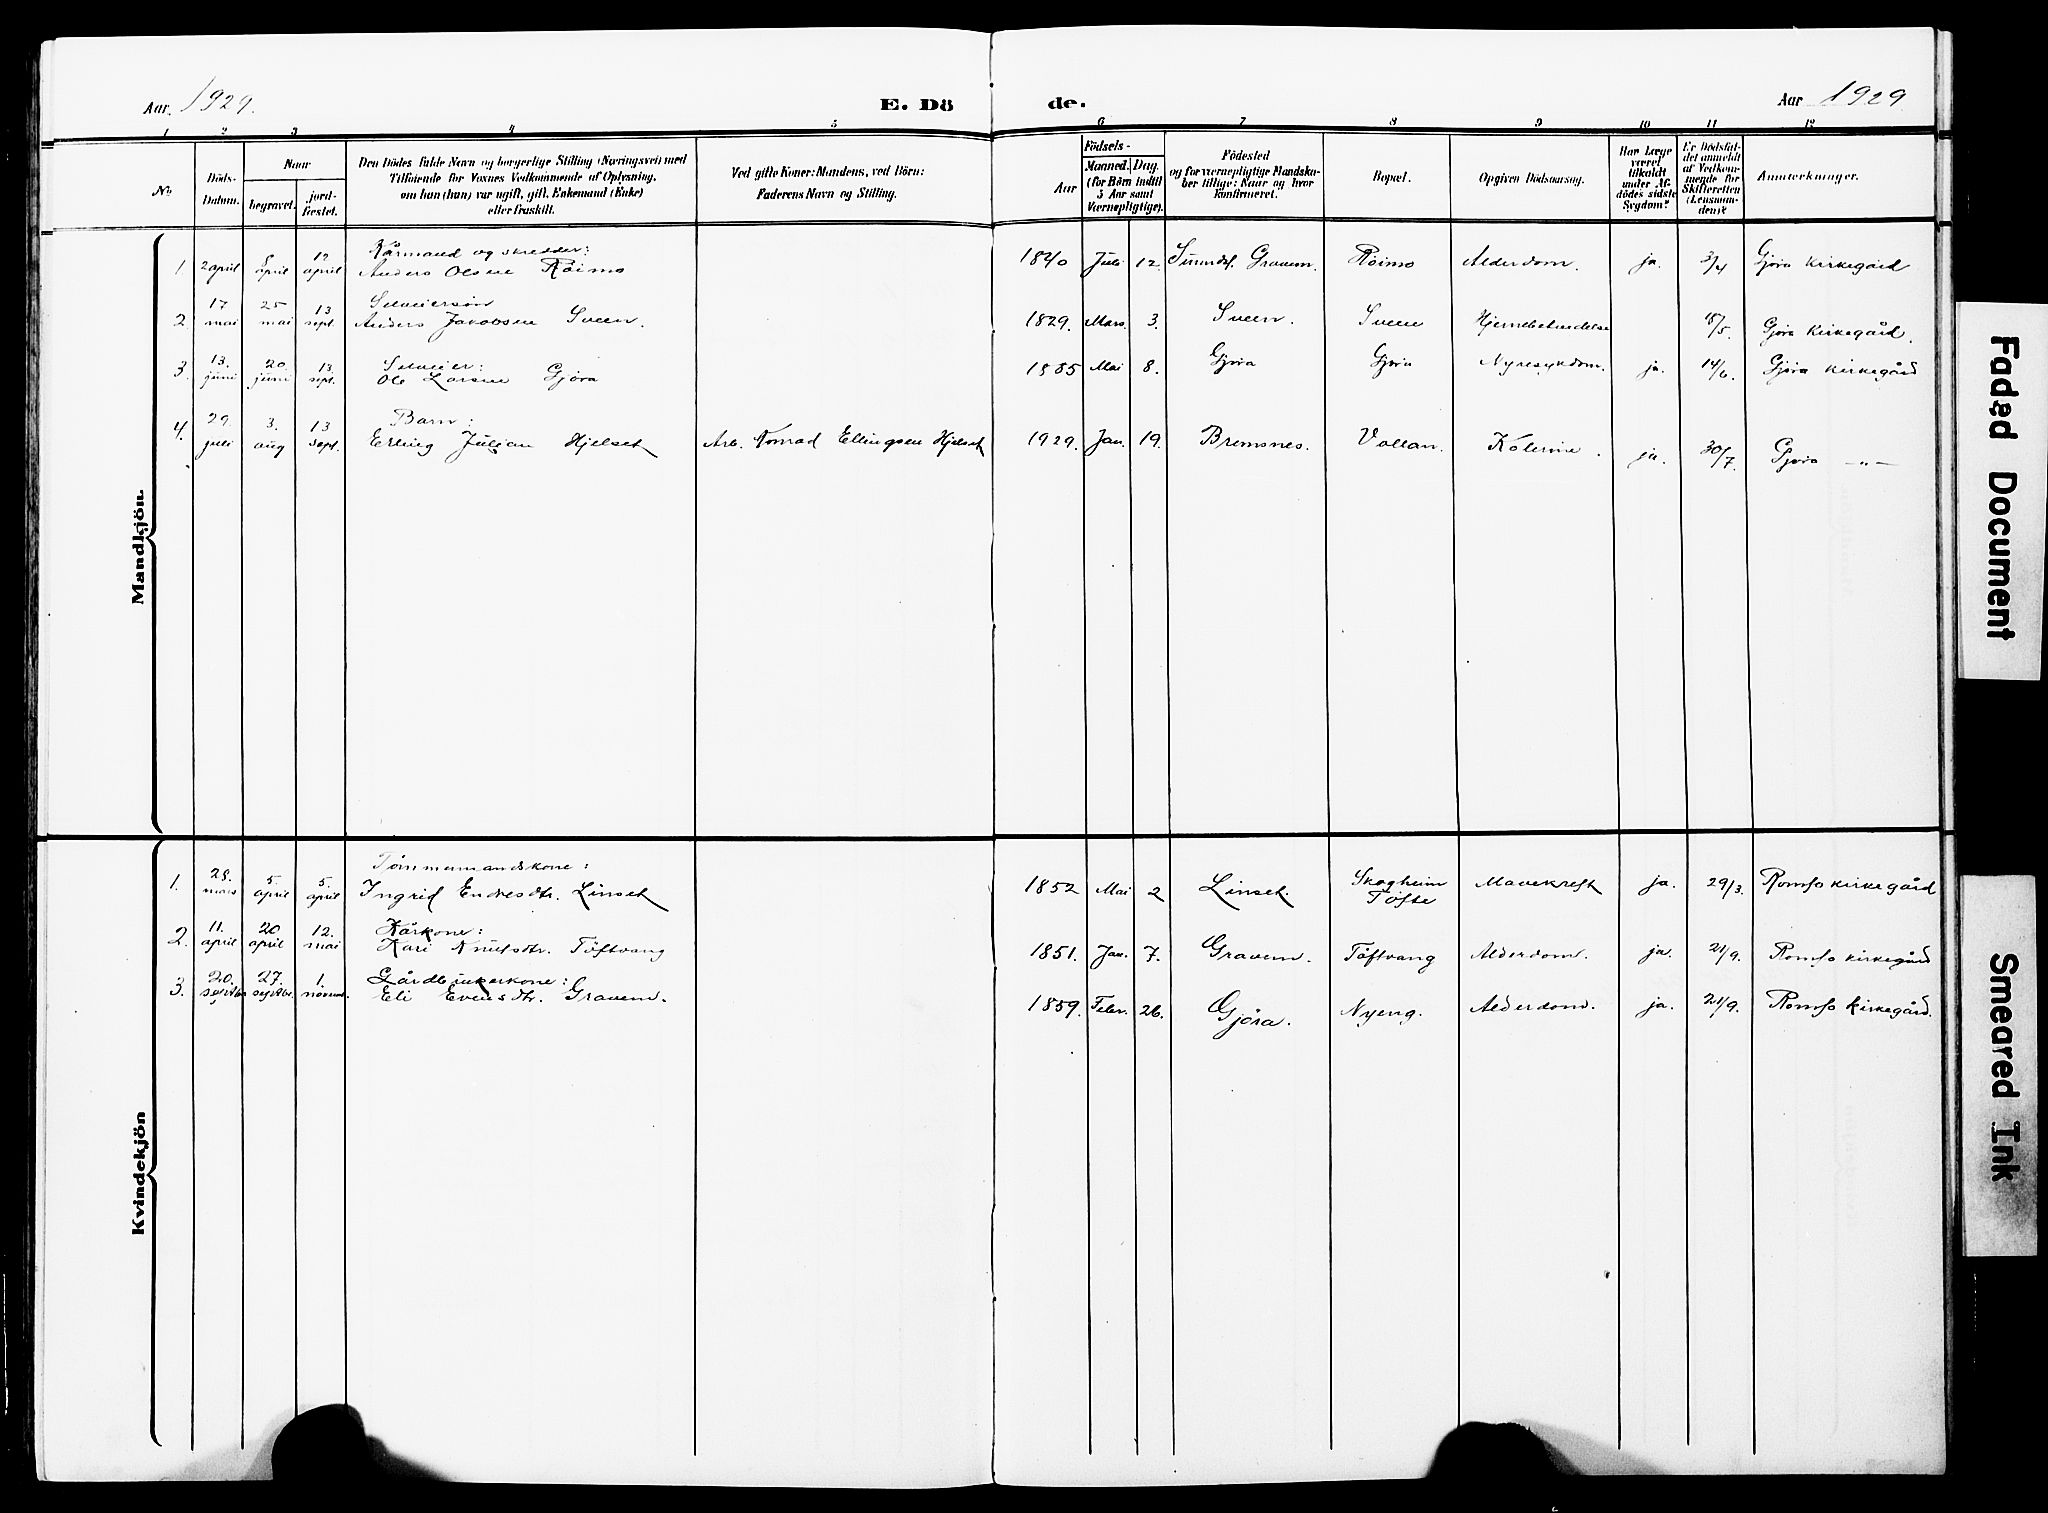 Aar. 1929.
E. Dö
de.
Aar 1929
1 2 3 4 5 6 7 8 9 10 11 12
No
Døds-
Datum.
Naar
begravet.
jord-
fæstet.
Den Dödes fulde Navn og borgerlige Stilling (Næringsvei) med
Tilföiende for Voxnes Vedkommende af Oplysning,
om han (hun) var ugift, gift, Enkemand (Enke)
eller fraskilt.
Ved gifte Koner: Mandens, ved Börn:
Faderens Navn og Stilling.
Födsels-
Aar
Maaned. Dag.
(for Börn indtil
5 Aar samt
Værnepligtige).
Födested
og for værnepligtige Mandska-
ber tillige: Naar og hvor
konfirmeret.
Bopæl.
Opgiven Dödsaarsag.
Har Læge
været
tilkaldt
under Af-
dödes sidste
Sygdom?
Er Dödsfal-
det anmeldt
af Vedkom-
mende for
Skifteretten
(Lensman-
den)?
Anmærkninger.
Mandkjön.
1 2 april 8 april 12 april Kårmand og skredder:
Anders Olsen Röimo 1840 Juli 12. Sunndal. Gravem. Röimo Alderdom. ja. 3/4 Gjöra Kirkegård
2. 17 mai 25 mai 13 sept. Selveiersön
Anders Jakobsen Sveen. 1829. Mars. 3. Sveen. Sveen Hjernebetendelse 18/5. Gjöra Kirkegård.
3. 13. juni 20. juni 13. sept. Selveier:
Ole Larsen Gjöra 1885 Mai 8. Gjöra Gjöra Nyresykdom. ja. 14/6. Gjöra Kirkegård
4. 29. juli 3. aug 13 sept. Barn:
Erling Julian Hjelset Arb. Konrad Ellingsen Hjelset 1929. Jan. 19. Bremsnes. Vollan. Kolerine. ja. 30/7. Gjöra —"—
Kvindekjön
1. 28. mars 5. april 5. april Tömmermandskone:
Ingrid Endresdtr. Linset 1852 Mai 2 Linset. Skogheim
Töfte Mavekreft ja. 29/3. Romfo kirkegård
2. 11. april 20 april 12. mai Kårkone:
Kari Knutsdtr. Töftvang 1851. Jan. 7. Gravem. Töftvang Alderdom. ja. 21/9. Romfo kirkegård
3. 20. septbr 27. septbr. 1. novem. Gårdbrukerkone:
Eli Evensdtr. Gravem. 1859. Febr. 26. Gjöra. Nyeng. Alderdom. ja. 21/9. Romfo Kirkegård.
Faded Document
Smeared Ink